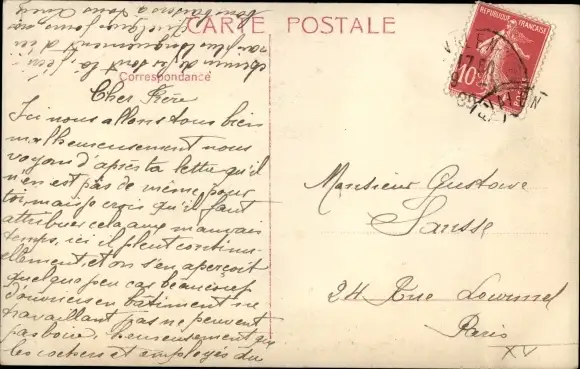 CARTE POSTALE
Correspondance
Cher Frère
Ici nous allons tous bien
malheureusement nous
voyons d'après ta lettre qu'il
n'en est pas de même pour
toi, mais je crois qu'il faut
attribuer cela aux mauvais
temps, ici il pleut continu-
ellement, et on s'en aperçoit
quelque peu car beaucoup
d'ouvriers en bâtiment ne
travaillant pas ne peuvent
pas boire, heureusement que
les cochers et employés du
chemin de fer sont là, j'écri-
rai plus longuement d'ici
quelques jours
bons baisers à tous
REPUBLIQUE FRANÇAISE
10
Monsieur Gustave
Sausse
24 Rue Lourmel
Paris
XV